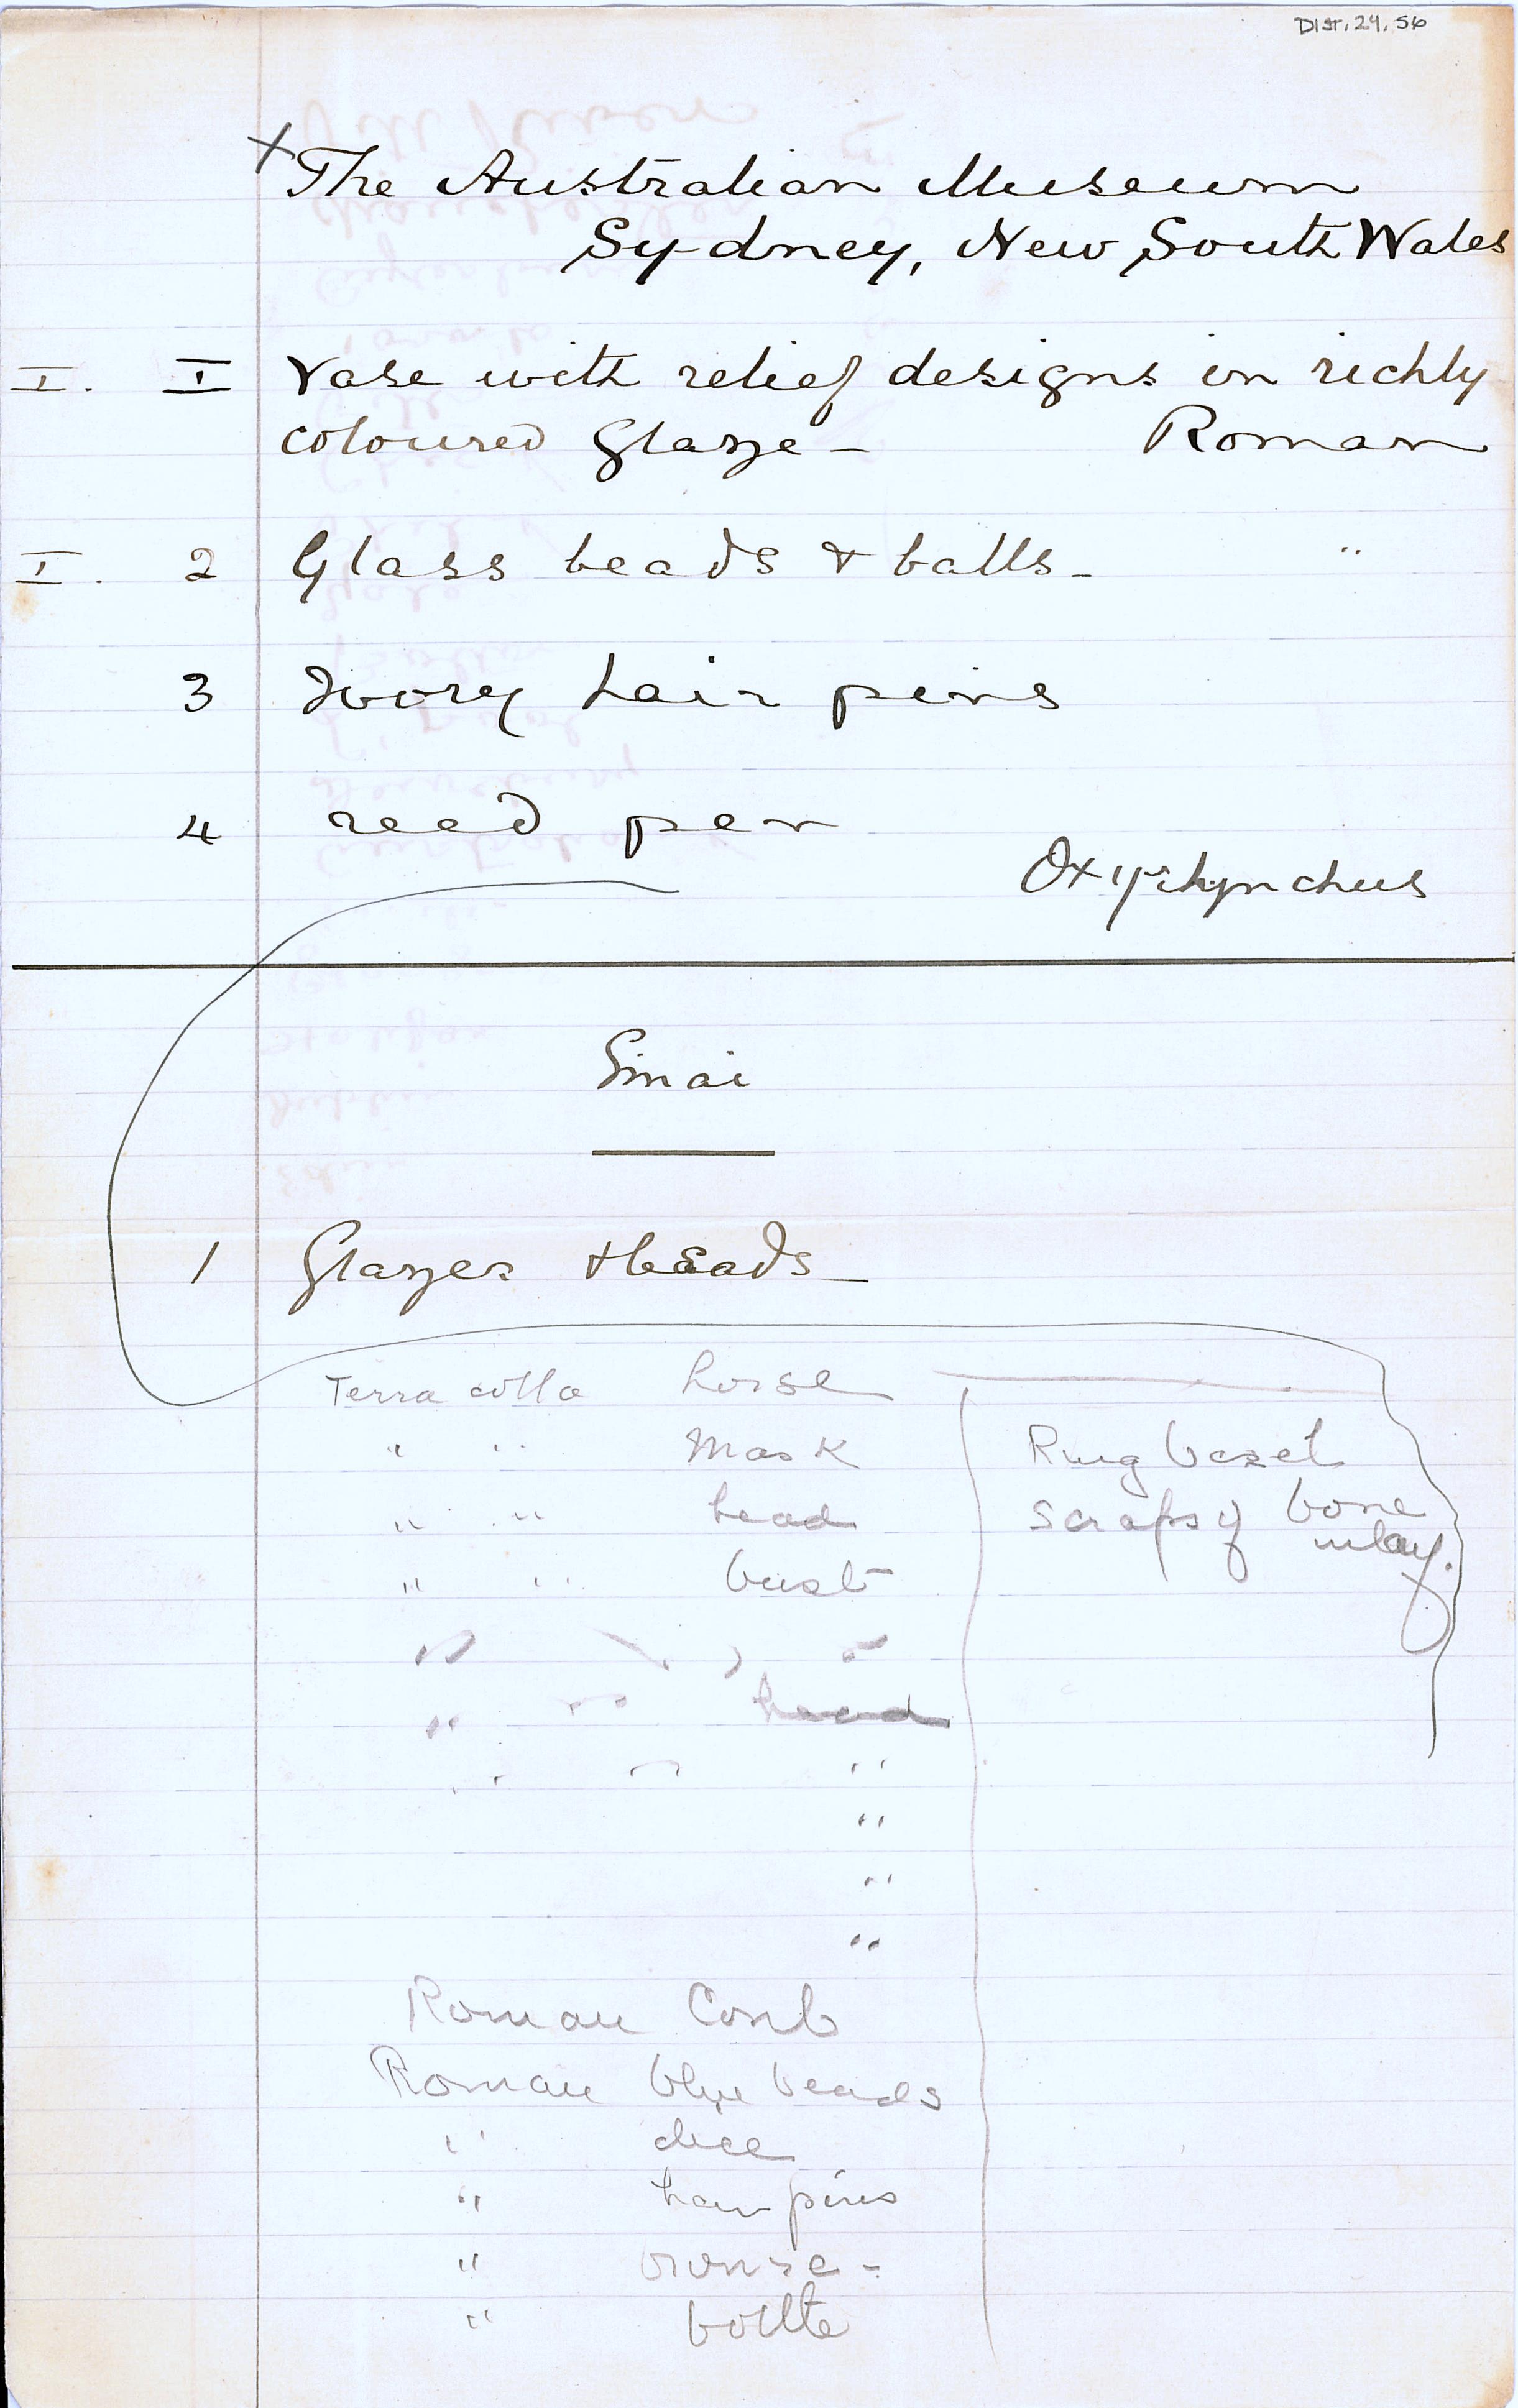 Dist. 24. 56
x The Australian Museum
Sydney, New South Wales
I. I Vase with relief designs in richly
coloured Glaze - Roman
I. 2 Glass beads & balls - "
3 Ivory hair pins
4 reed pen
Oxyrhynchus
Sinai
1 Glazes & beads -
Terra cotta horse
" " Mask
Ring bezel
" " head
scraps of bone
inlay.
" " bust
" " "
" " head
" " "
"
"
"
Roman Comb
Roman blue beads
" dice
" hair pins
" bronze -
" bottle